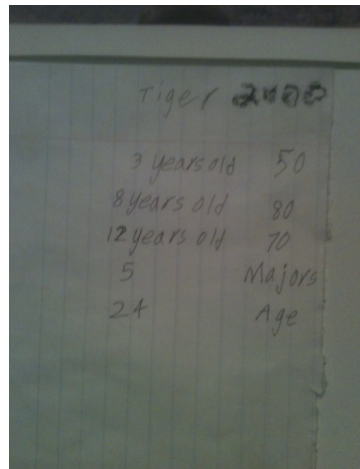 Tiger 2000
3 years old 50
8 years old 80
12 years old 70
5 Majors
24 Age